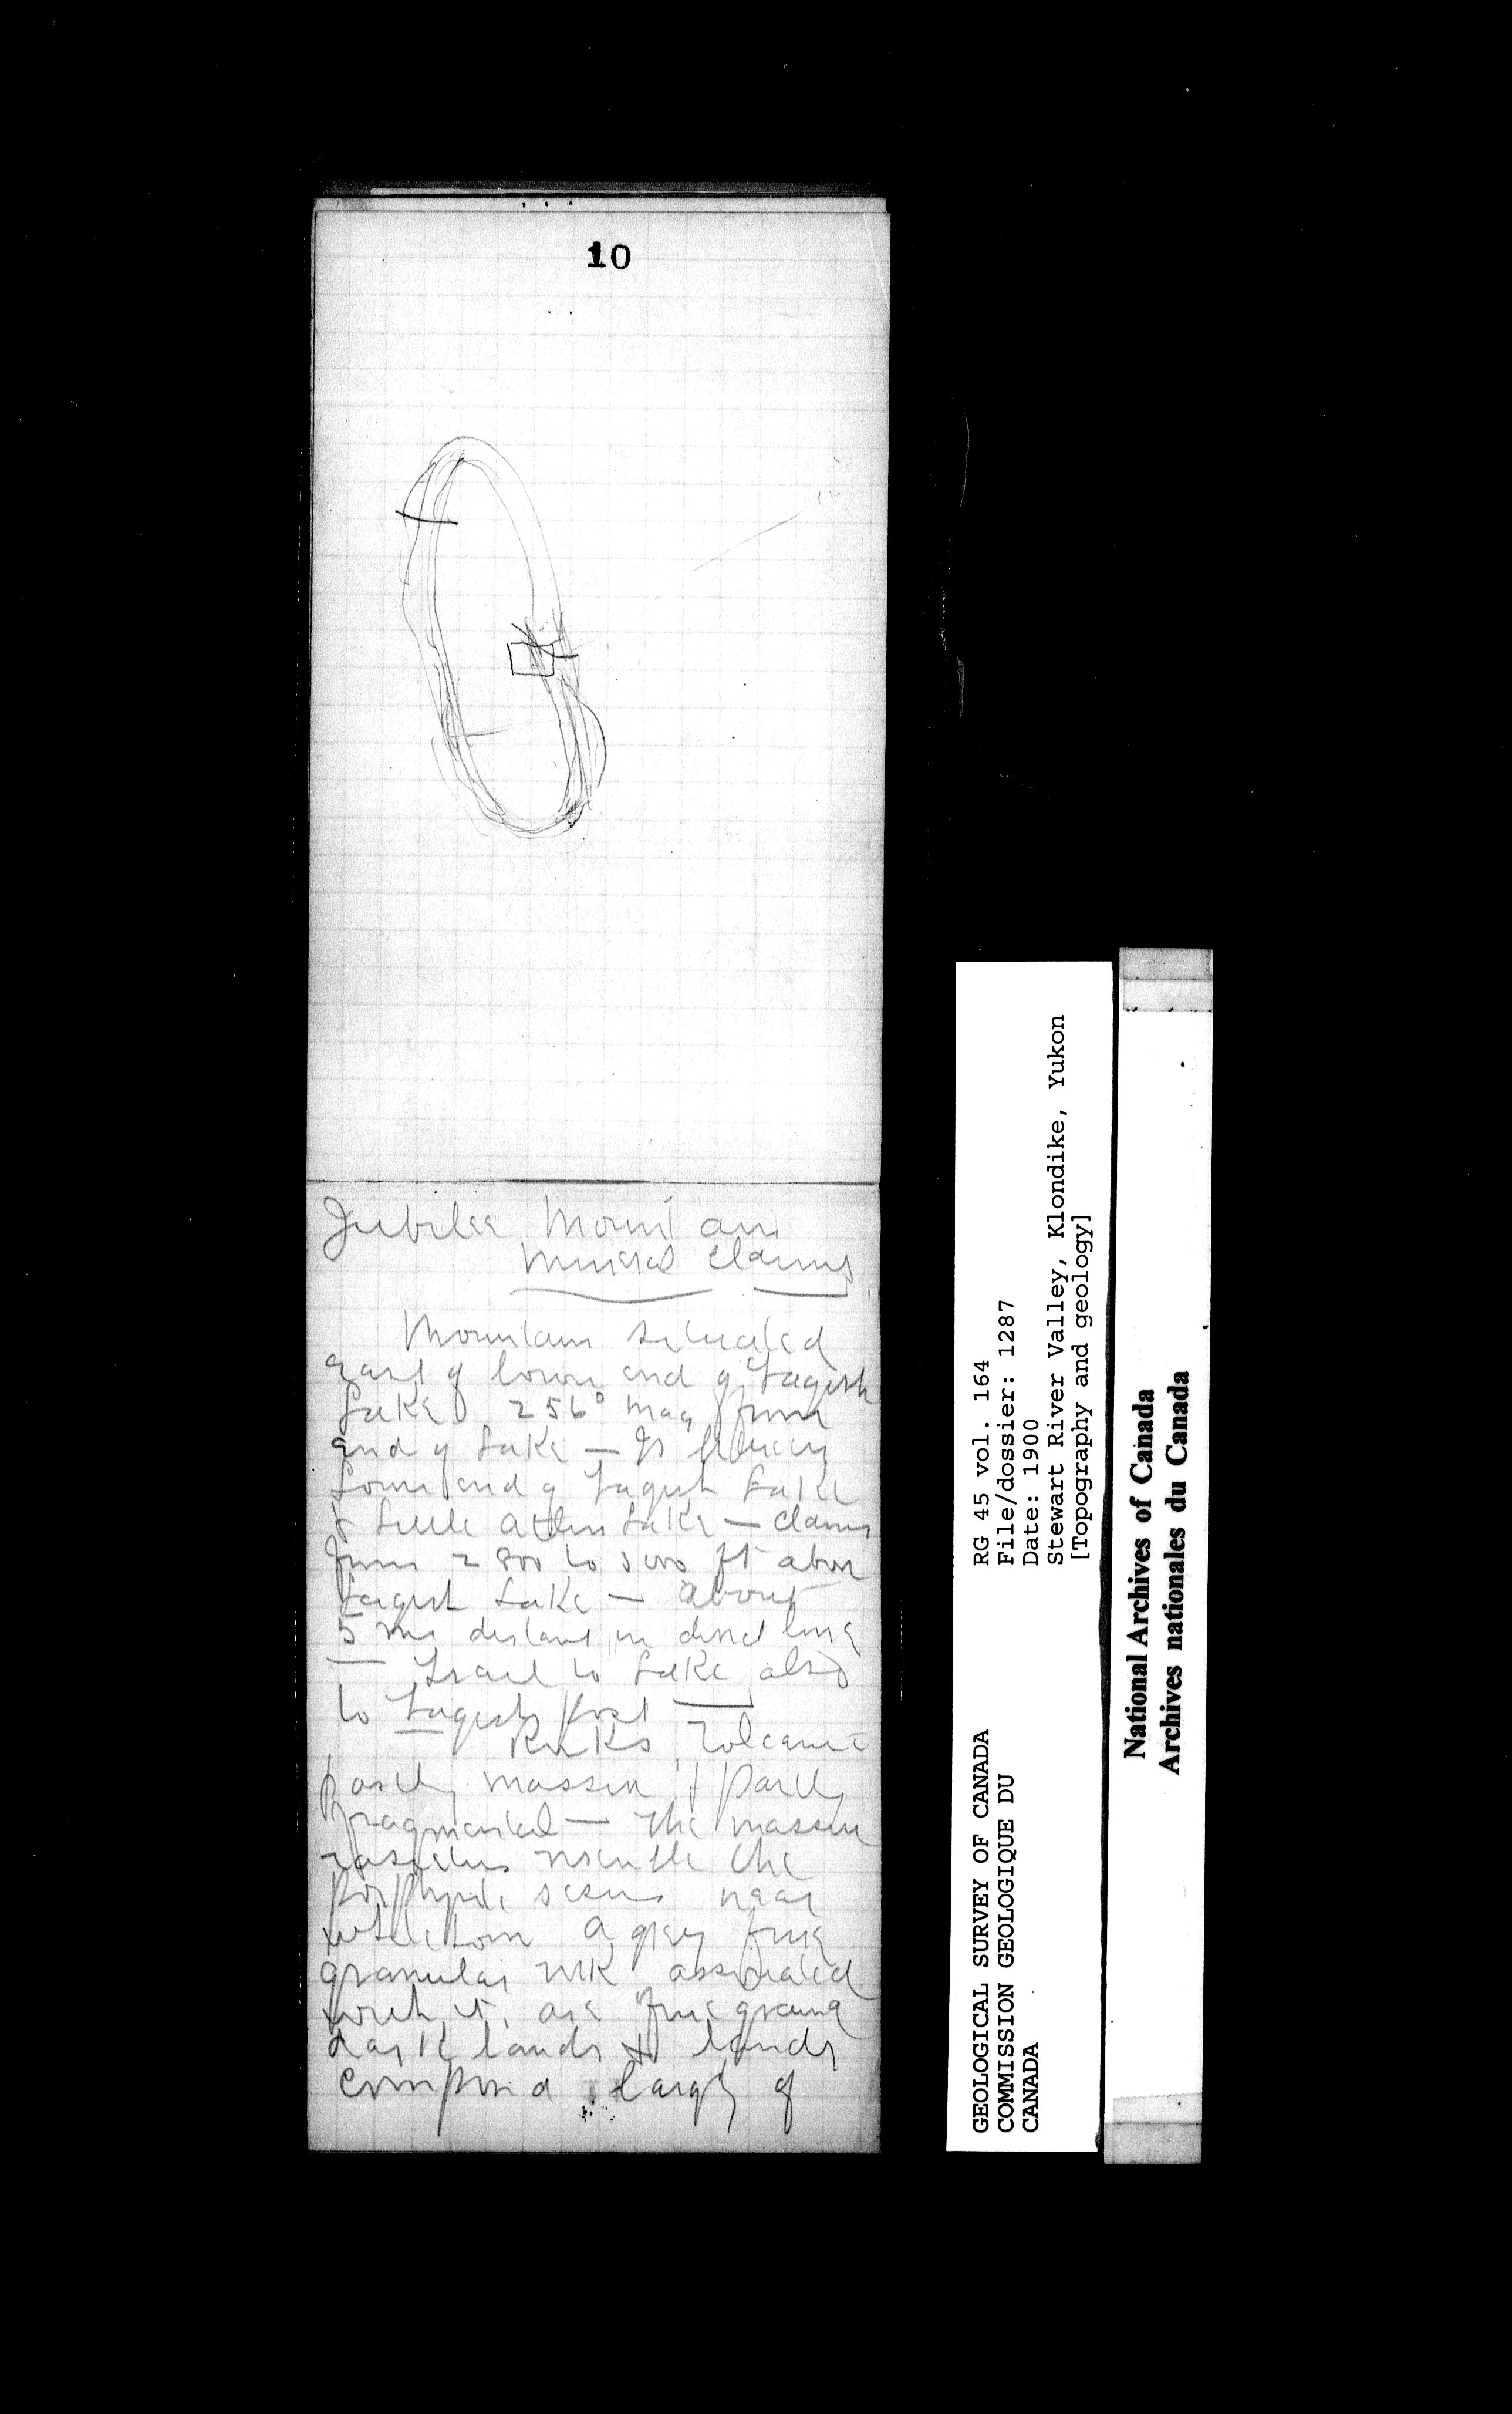 10
Jubilee Mountain
Mineral Claims
Mountain situated
east of lower end of Tagish
Lake 256° mag from
end of Lake — Is between
lower end of Tagish Lake
& Little Atlin Lake — claims
from 2800 to 3000 ft above
Tagish Lake — about
5 ms distant in direct line
— Trail to Lake also
to Tagish Post —
Rocks Volcanic
partly massive & partly
fragmental — The massive
varieties resemble the
porphyrite seen near
whitehorse A grey fine
granular rock associated
with it, are fine grained
dark bands & bands
composed largely of
GEOLOGICAL SURVEY OF CANADA
COMMISSION GEOLOGIQUE DU
CANADA
RG 45 vol. 164
File/dossier: 1287
Date: 1900
Stewart River Valley, Klondike, Yukon
[Topography and geology]
National Archives of Canada
Archives nationales du Canada